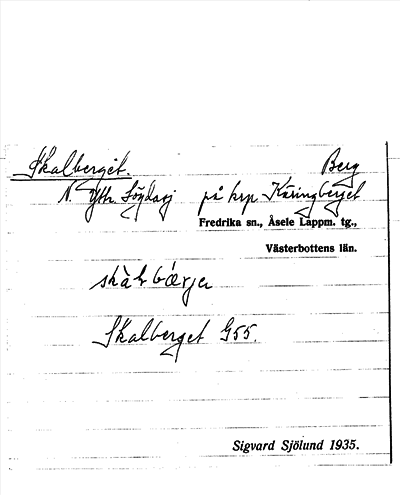 Skalberget. Berg
N. Yttr. Lögdasj på krp. Käringberget
Fredrika sn., Åsele Lappm. tg.,
Västerbottens län.
skàlbǽrjə
Skalberget G55.
Sigvard Sjölund 1935.